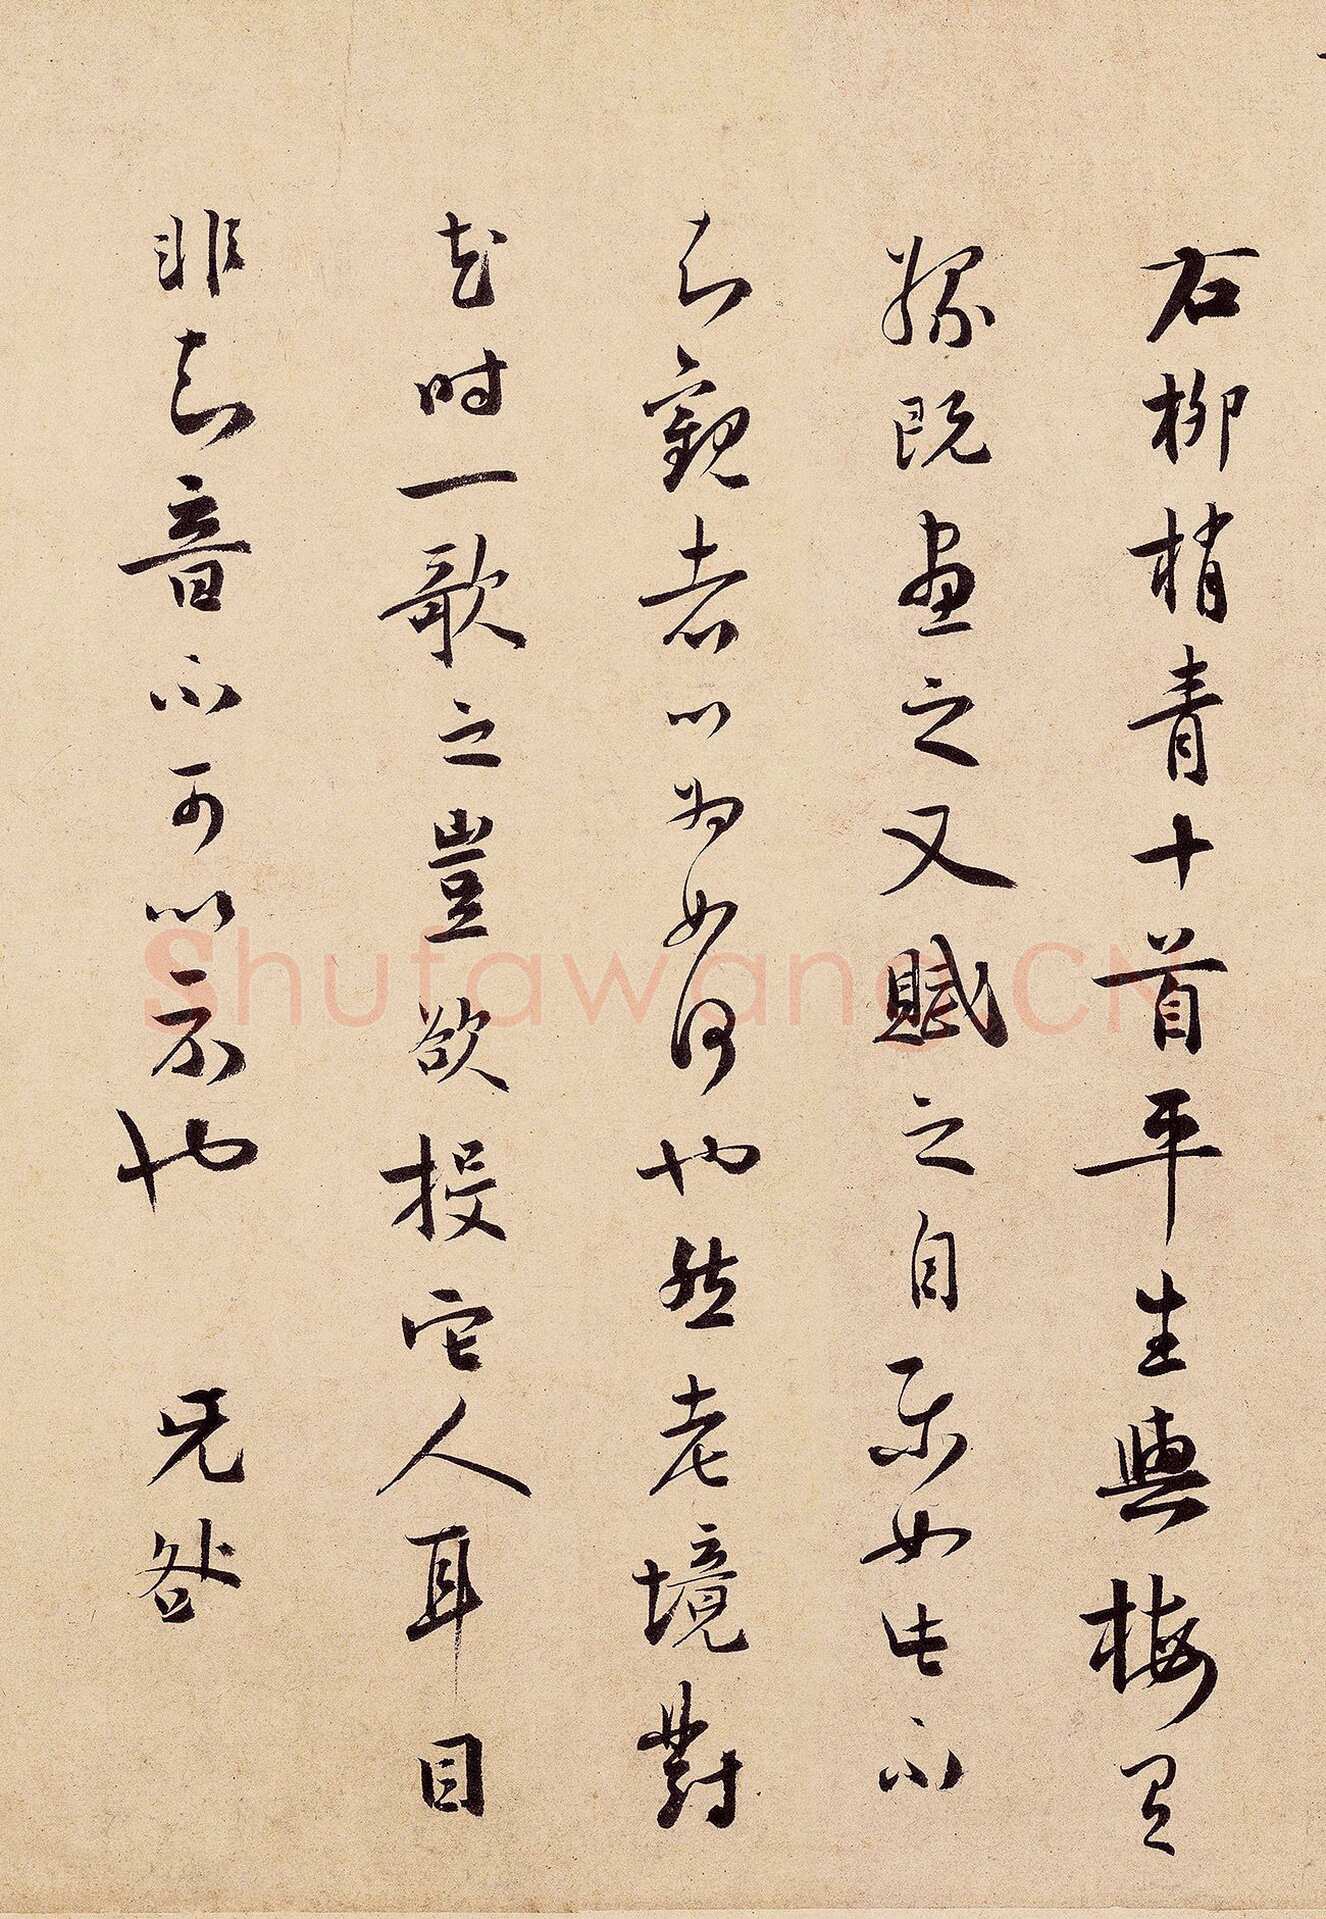 右柳梢青十首平生與梅有
緣既畫之又賦之自樂如此不
知觀者以為如何也然老境對
花時一歌之豈欲投它人耳目
非知音不可以示也 无咎
Shufawang.CN